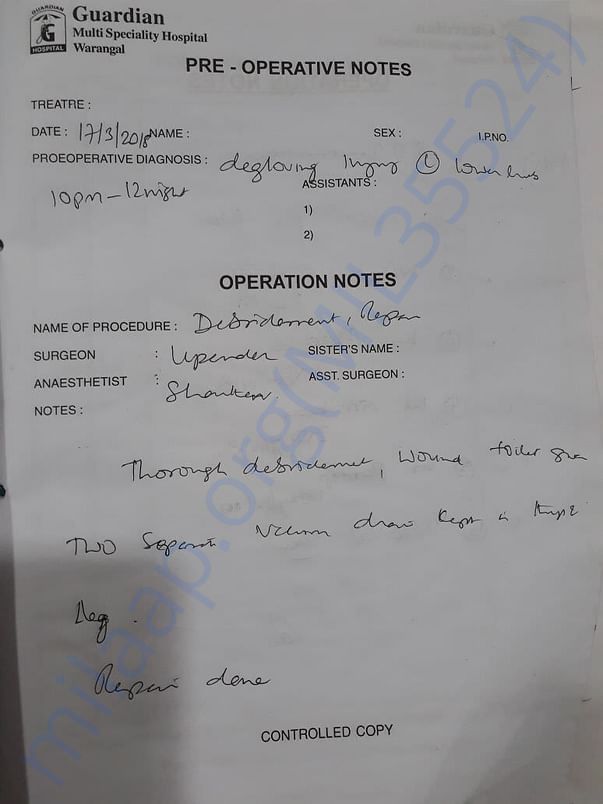 GUARDIAN
HOSPITAL
Guardian
Multi Speciality Hospital
Warangal
PRE - OPERATIVE NOTES
TREATRE :
DATE : 17/3/2018 NAME : SEX : I.P.NO.
PROEOPERATIVE DIAGNOSIS : degloving Injury (L) lower limb
10pm - 12night ASSISTANTS :
1)
2)
OPERATION NOTES
NAME OF PROCEDURE : Debridement, Repair
SURGEON : Upender SISTER'S NAME :
ANAESTHETIST : Shanker ASST. SURGEON :
NOTES :
Thorough debridement, wound toilet given
Two Separate drain kept in
leg.
Repair done
CONTROLLED COPY
milaap.org(MIL35524)